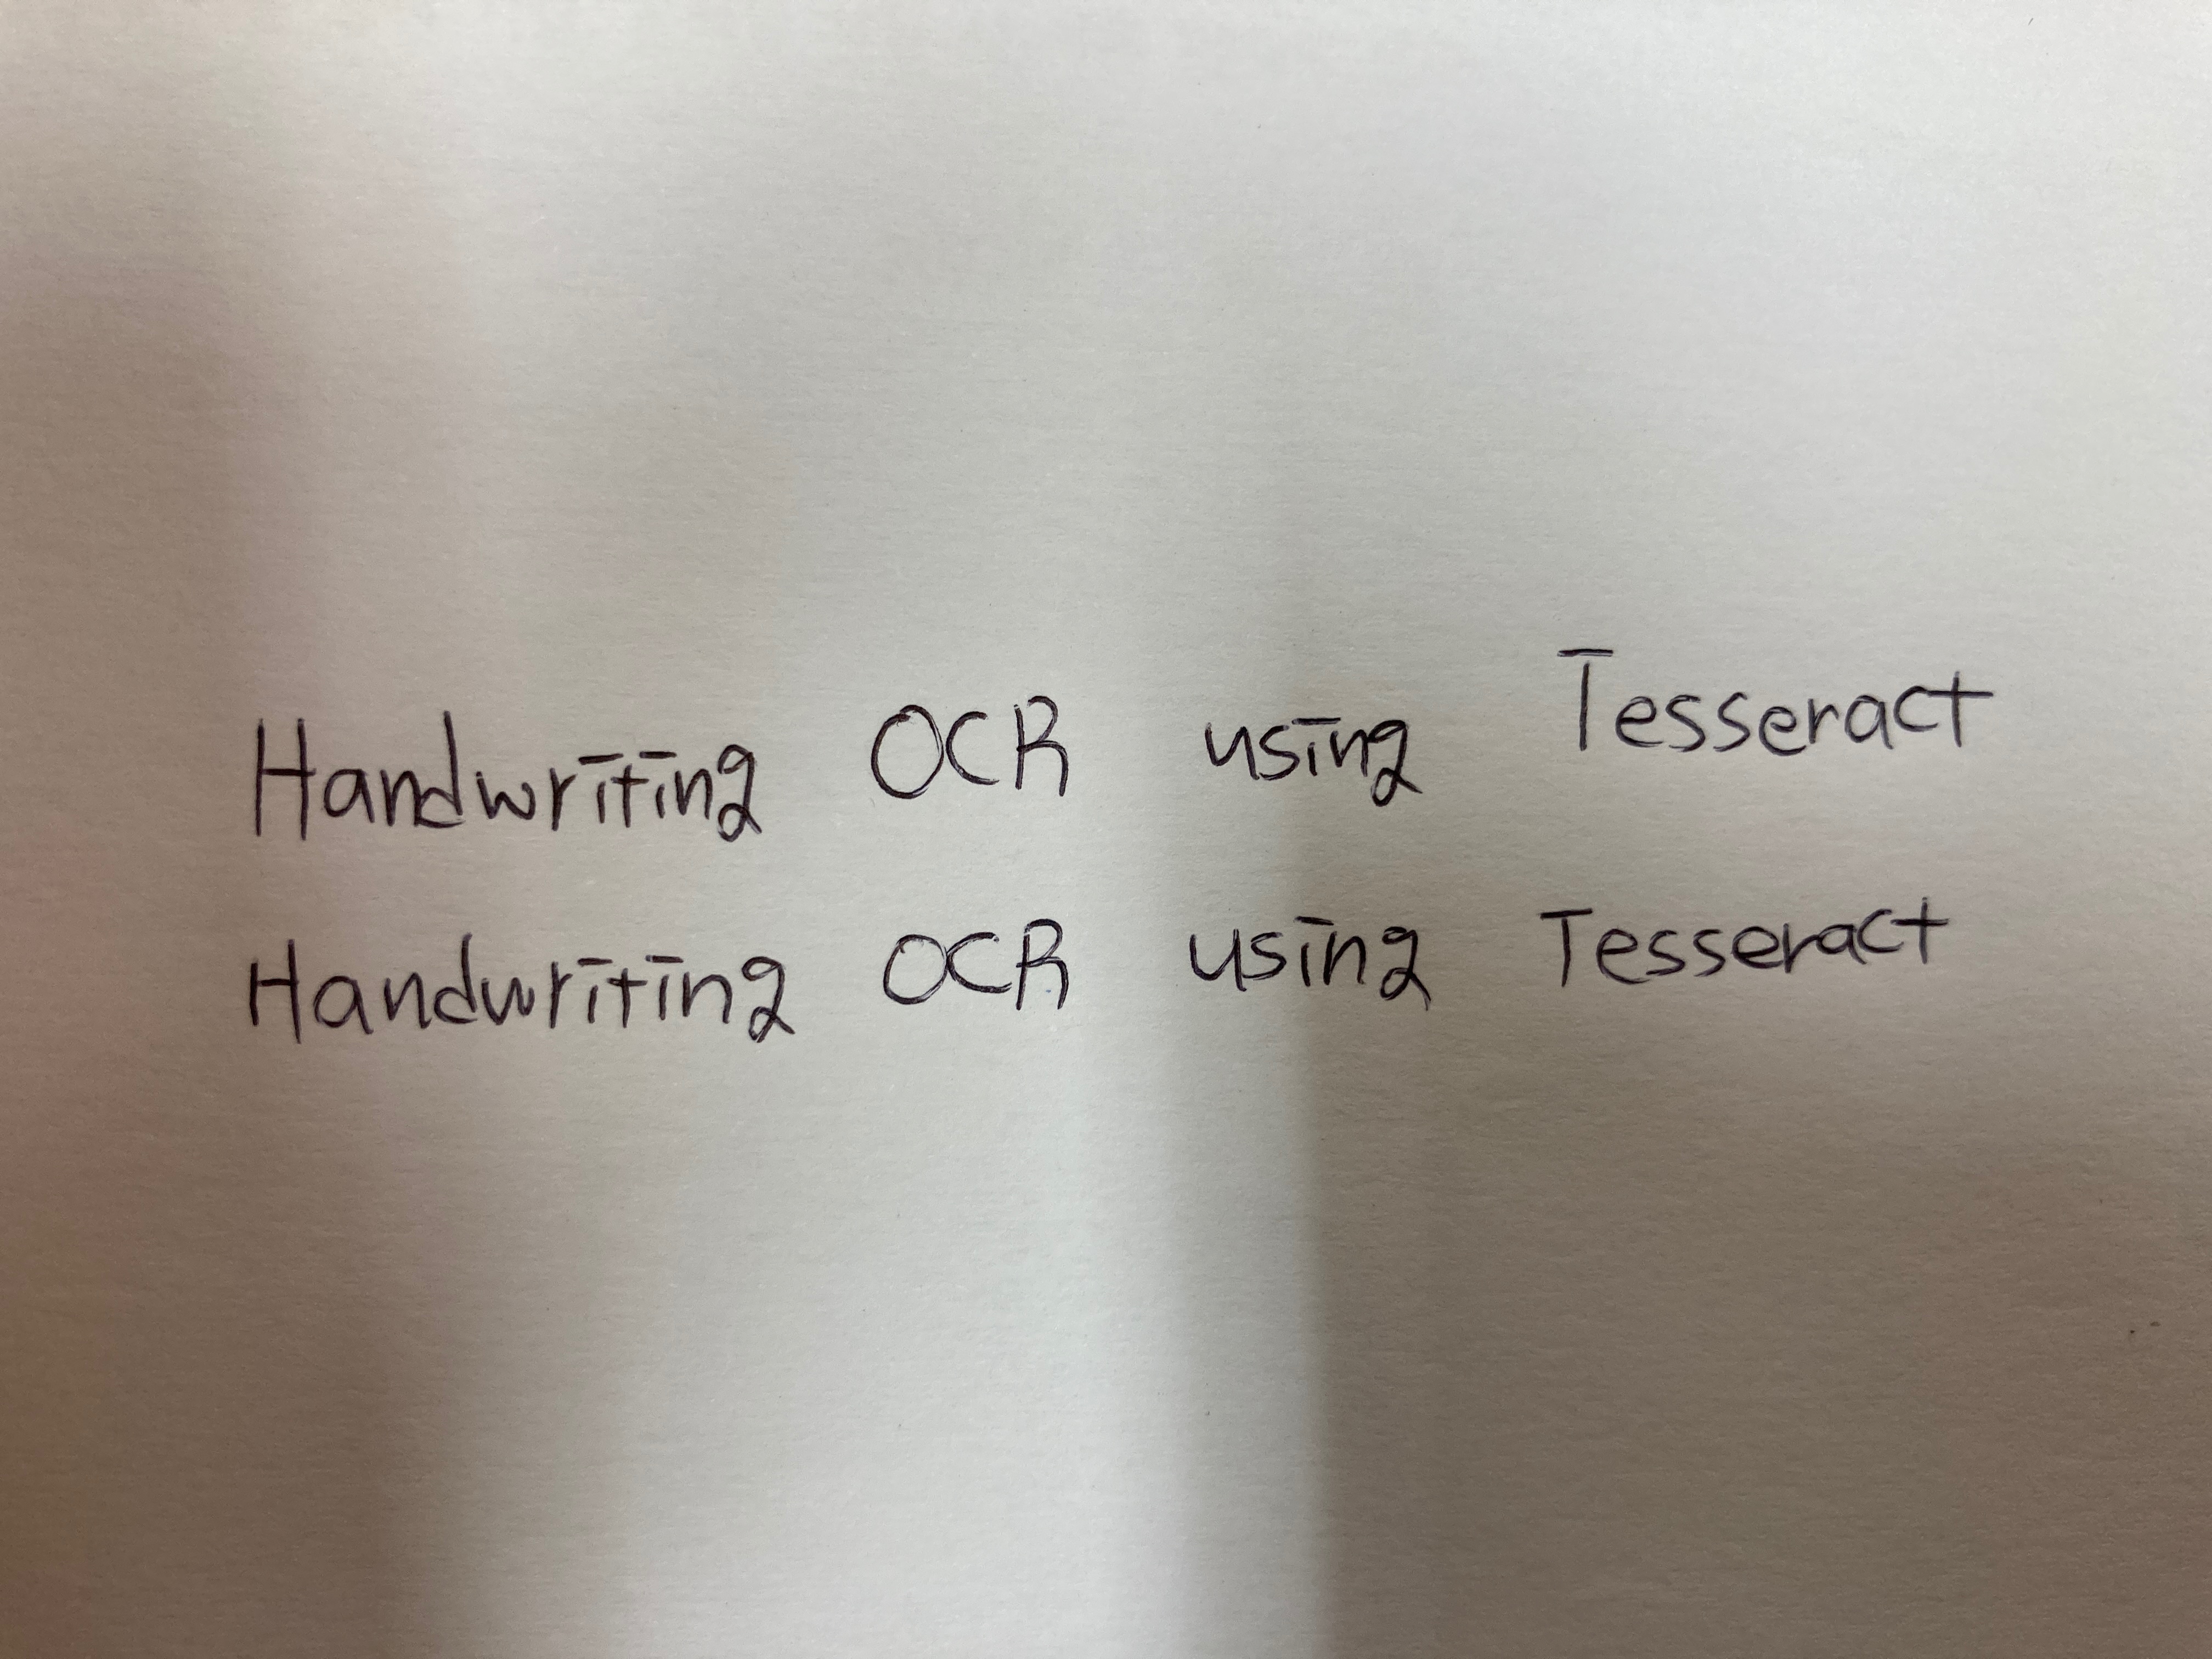 Handwriting OCR using Tesseract
Handwriting OCR using Tesseract